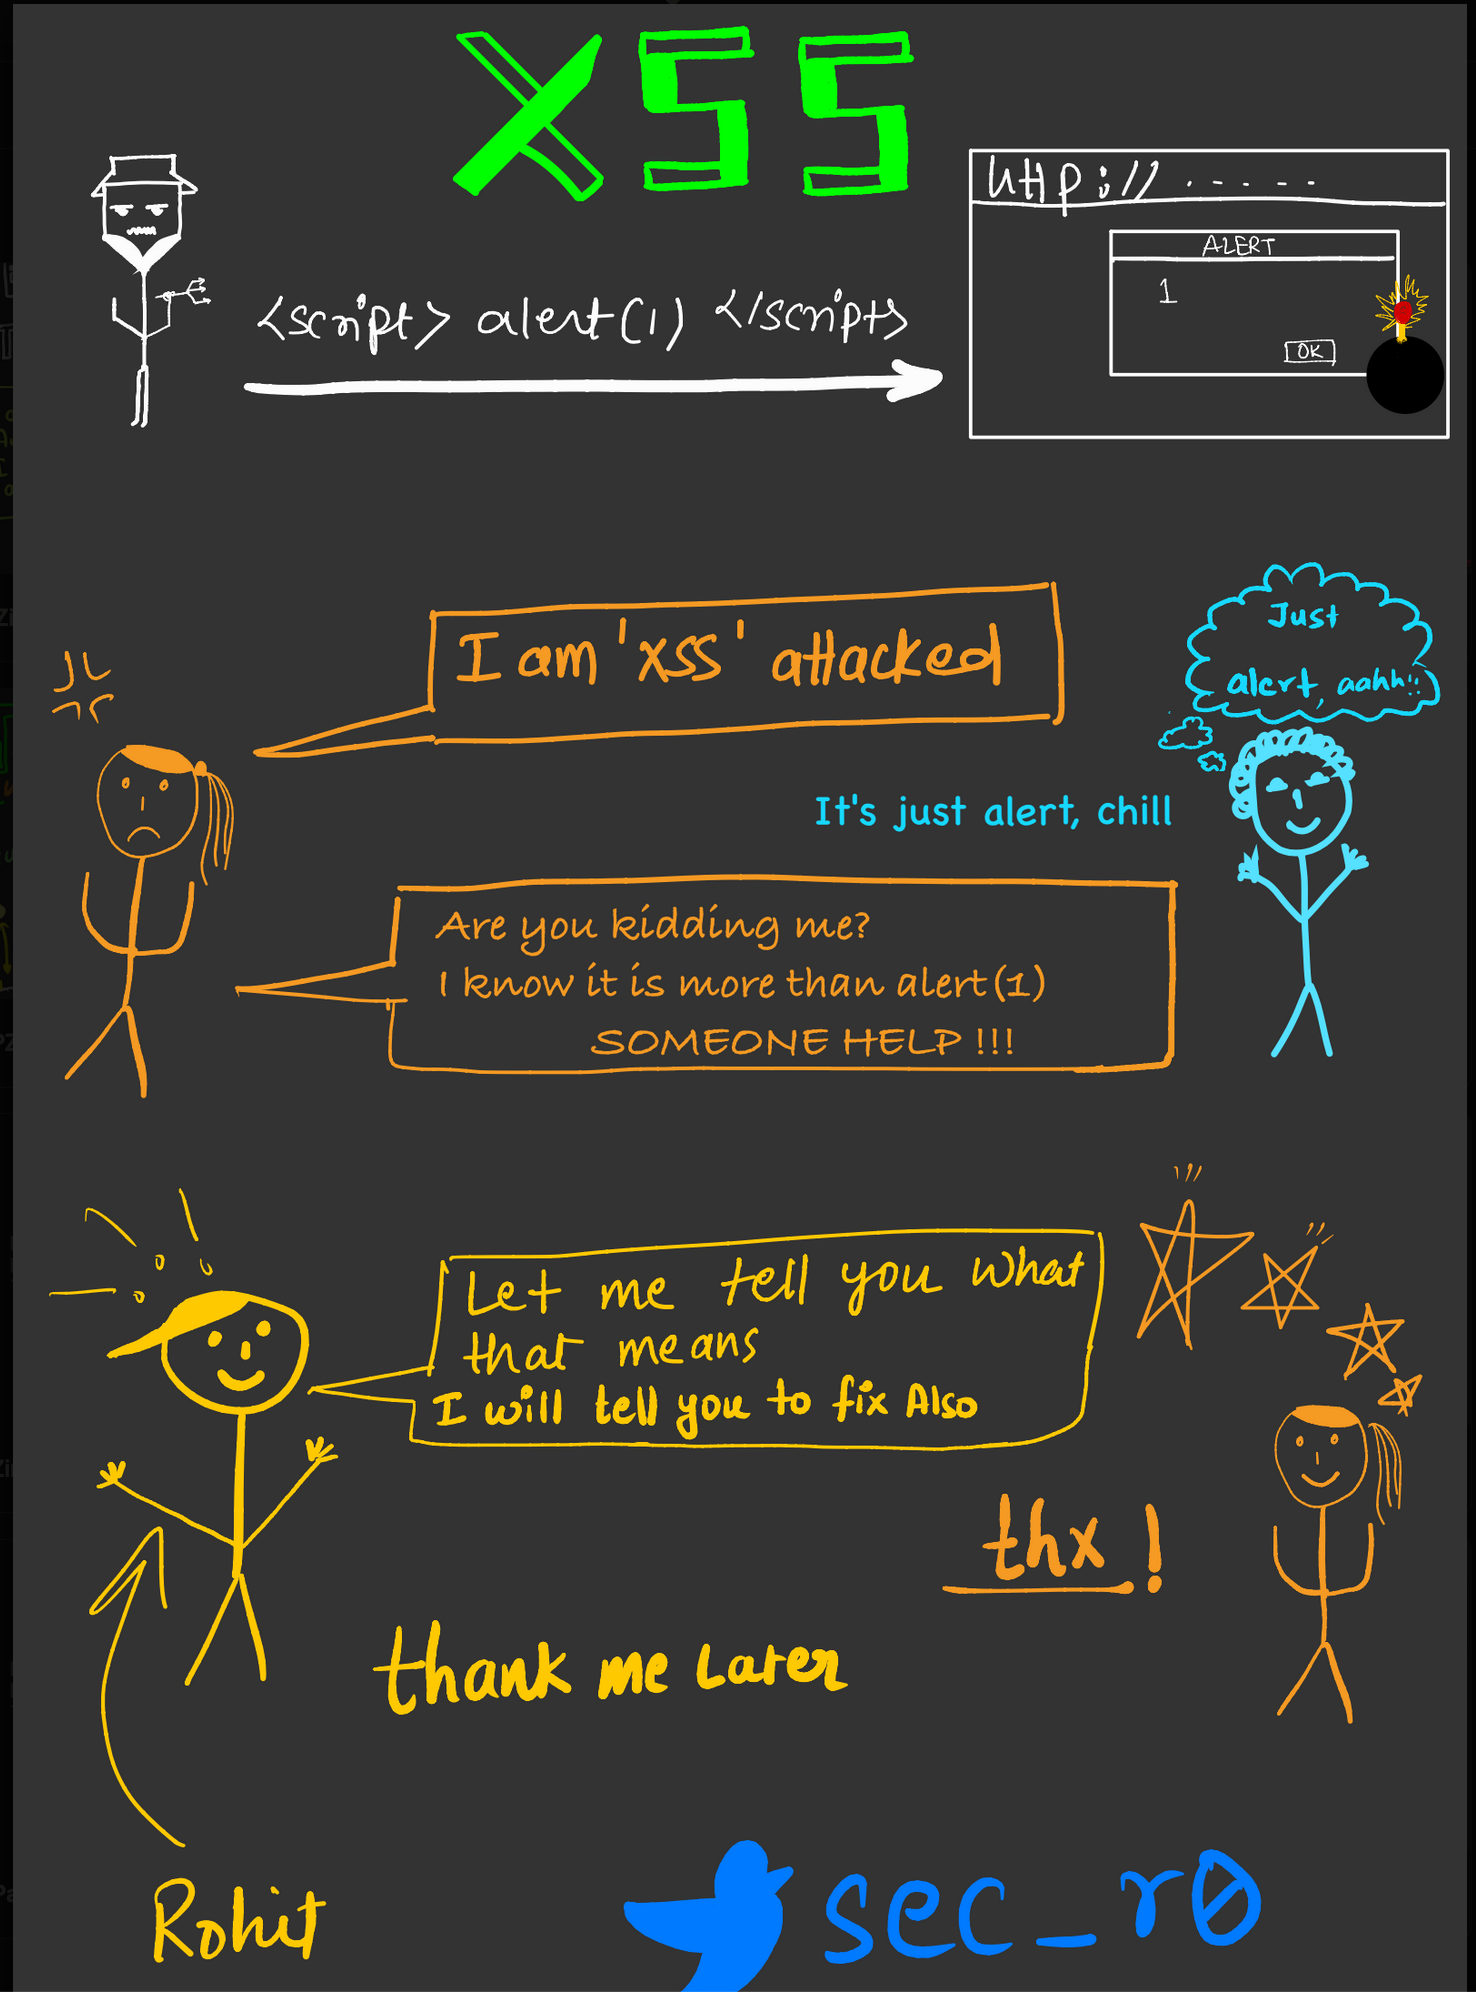 XSS
http://.-----
ALERT
1
OK
<script> alert(1) </script>
I am 'XSS' attacked
Just
alert, aahh!!
It's just alert, chill
Are you kidding me?
I know it is more than alert(1)
SOMEONE HELP !!!
Let me tell you what
that means
I will tell you to fix Also
thx!
thank me Later
Rohit
sec_r0